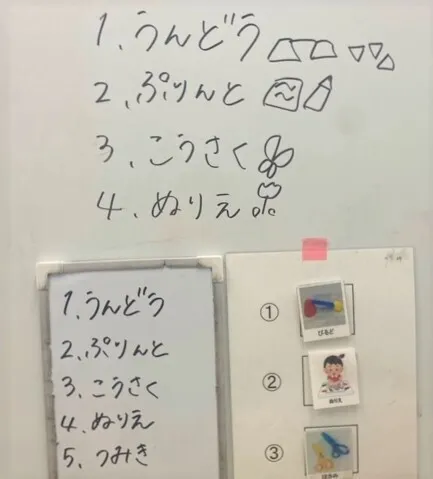 1. うんどう
2. ぷりんと
3. こうさく
4. ぬりえ
1. うんどう
2. ぷりんと
3. こうさく
4. ぬりえ
5. つみき
①
②
ぬりえ
③
はさみ